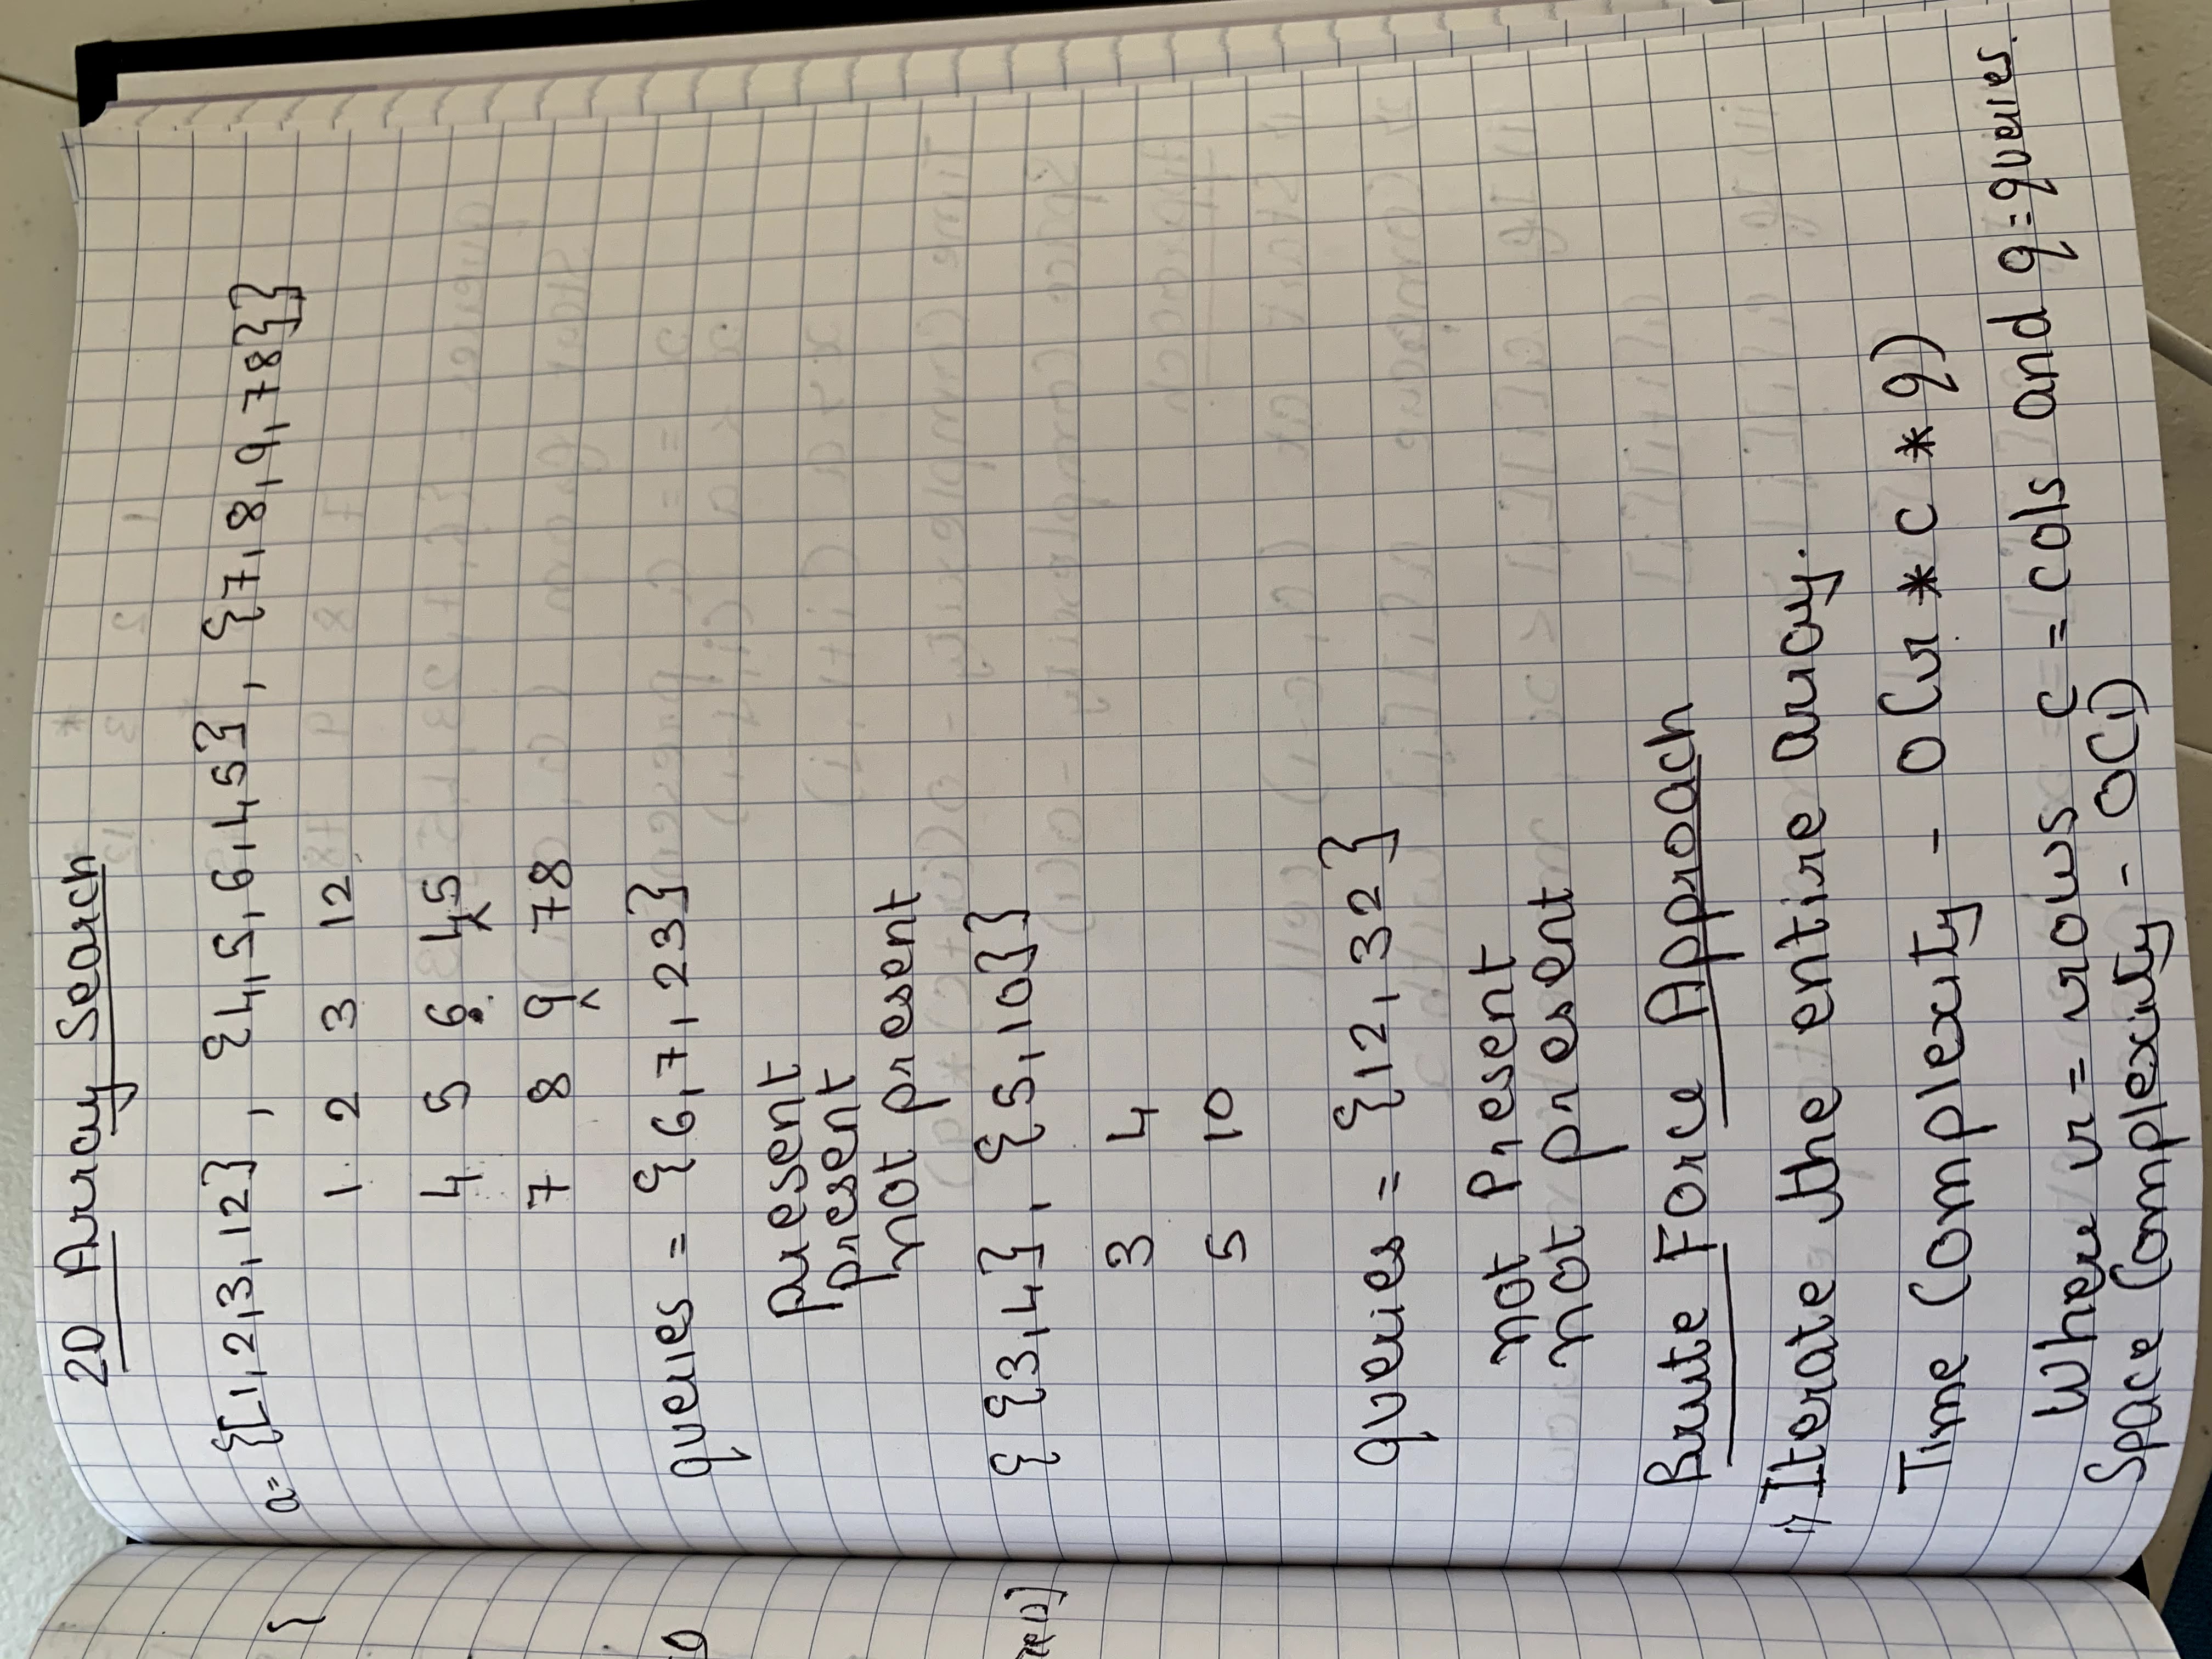 2D Array Search
a= {[1,2,3,12} , {4,5,6,45}, {7,8,9,78}}
1 2 3 12
4 5 6 45
7 8 9 78
queries = {6,7,23}
present
present
not present
{ {3,4}, {5,10}}
3 4
5 10
queries = {12, 32}
not Present
not present
Brute Force Approach
1) Iterate the entire array.
Time Complexity - O(r * c * q)
Where r = rows c = cols and q = queries.
Space Complexity - O(1)